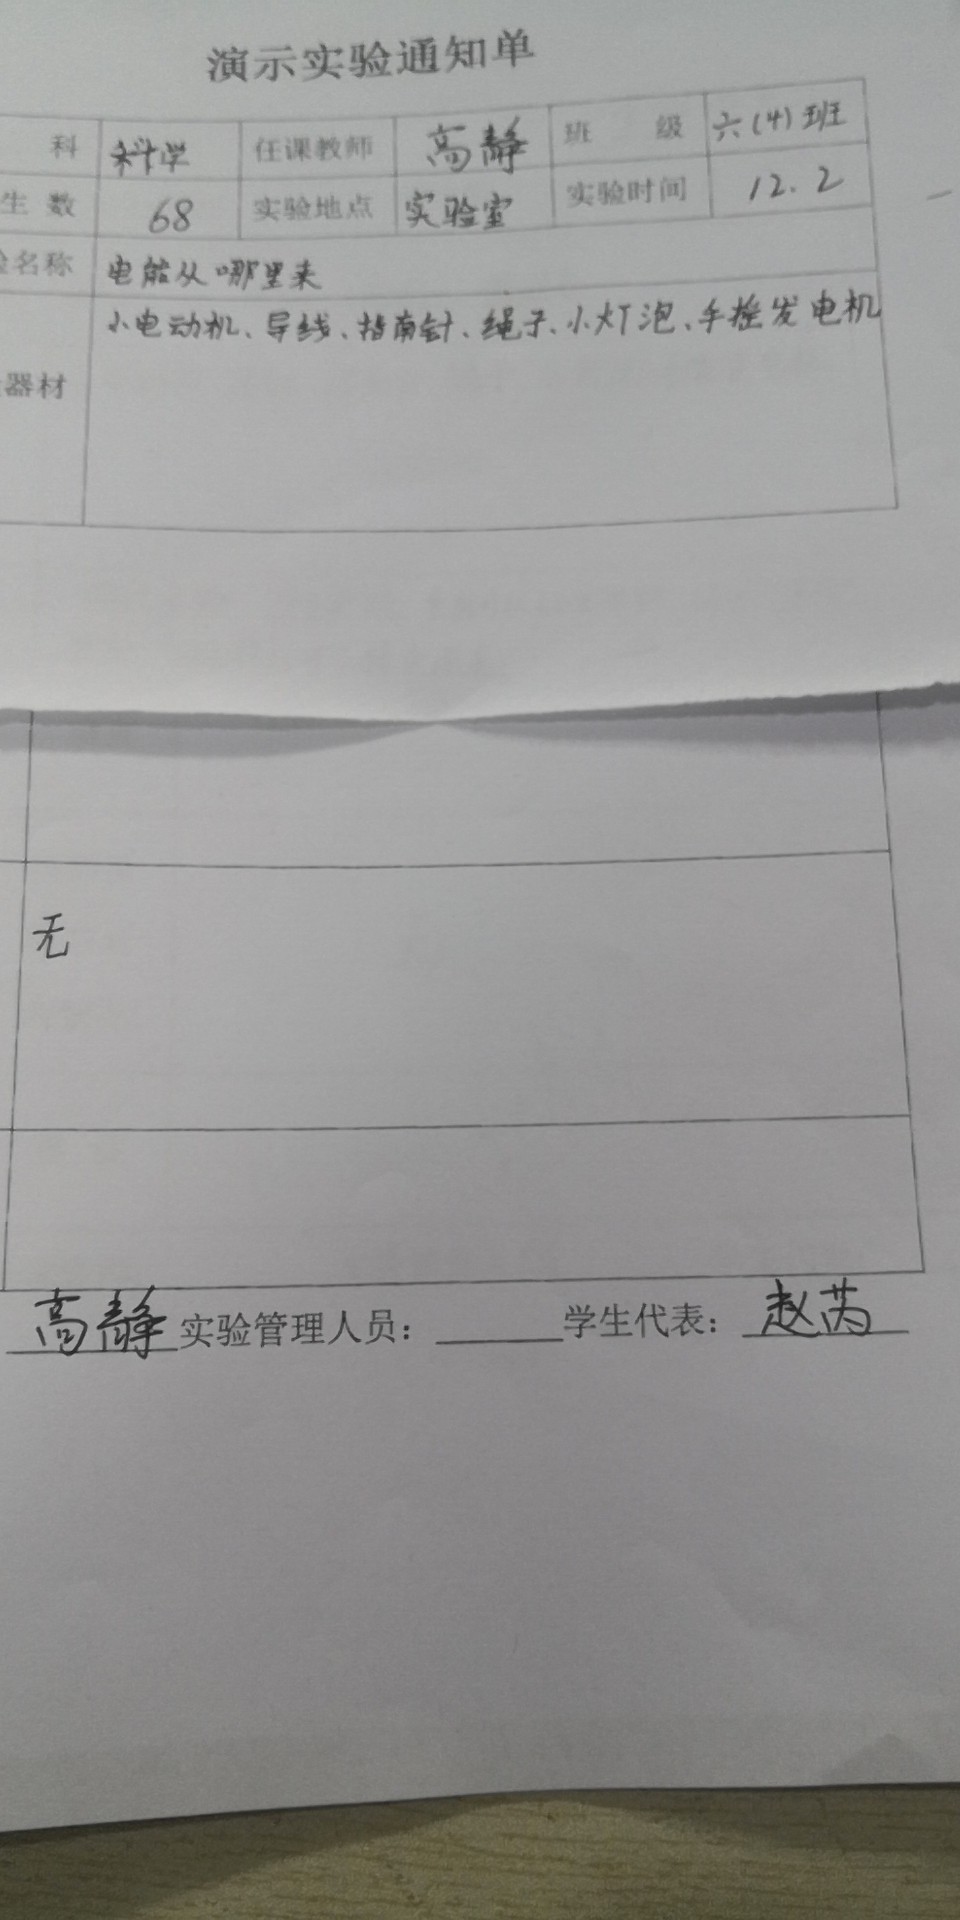 演示实验通知单
科 科学 任课教师 高静 班 级 六(4)班
生 数 68 实验地点 实验室 实验时间 12.2
验名称 电能从哪里来
小电动机、导线、指南针、绳子、小灯泡、手摇发电机
器材
无
高静 实验管理人员：______学生代表：赵芮